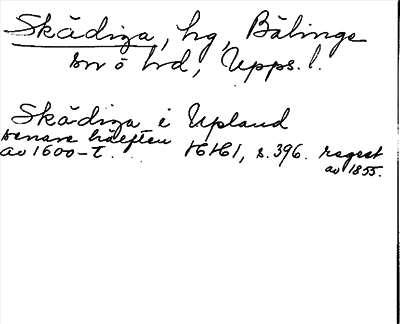 Skädiza, hg, Bälinge
sn o hd, Upps. l.
Skädiza i Upland
senare hälften
av 1600-t. HH1, s. 396. regest
av 1855.